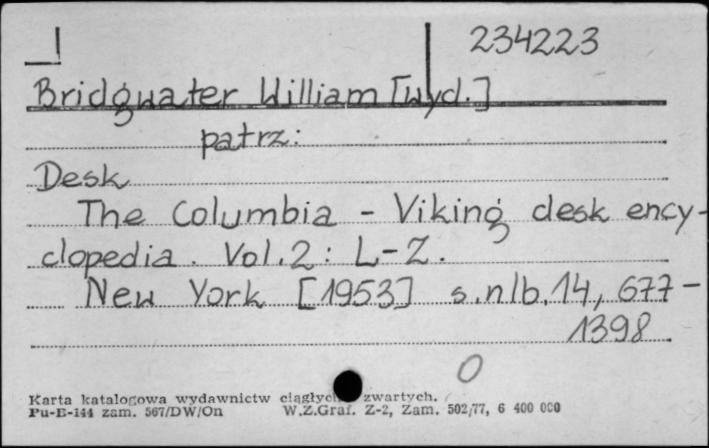 234223
Bridgwater William [wyd.]
patrz:
Desk
The Columbia - Viking desk ency-
clopedia. Vol. 2: L-Z.
New York [1953] s. nlb. 14, 677-
1398
0
Karta katalogowa wydawnictw ciągłych zwartych.
Pu-E-144 zam. 567/DW/On W.Z.Graf. Z-2, Zam. 502/77, 6 400 000